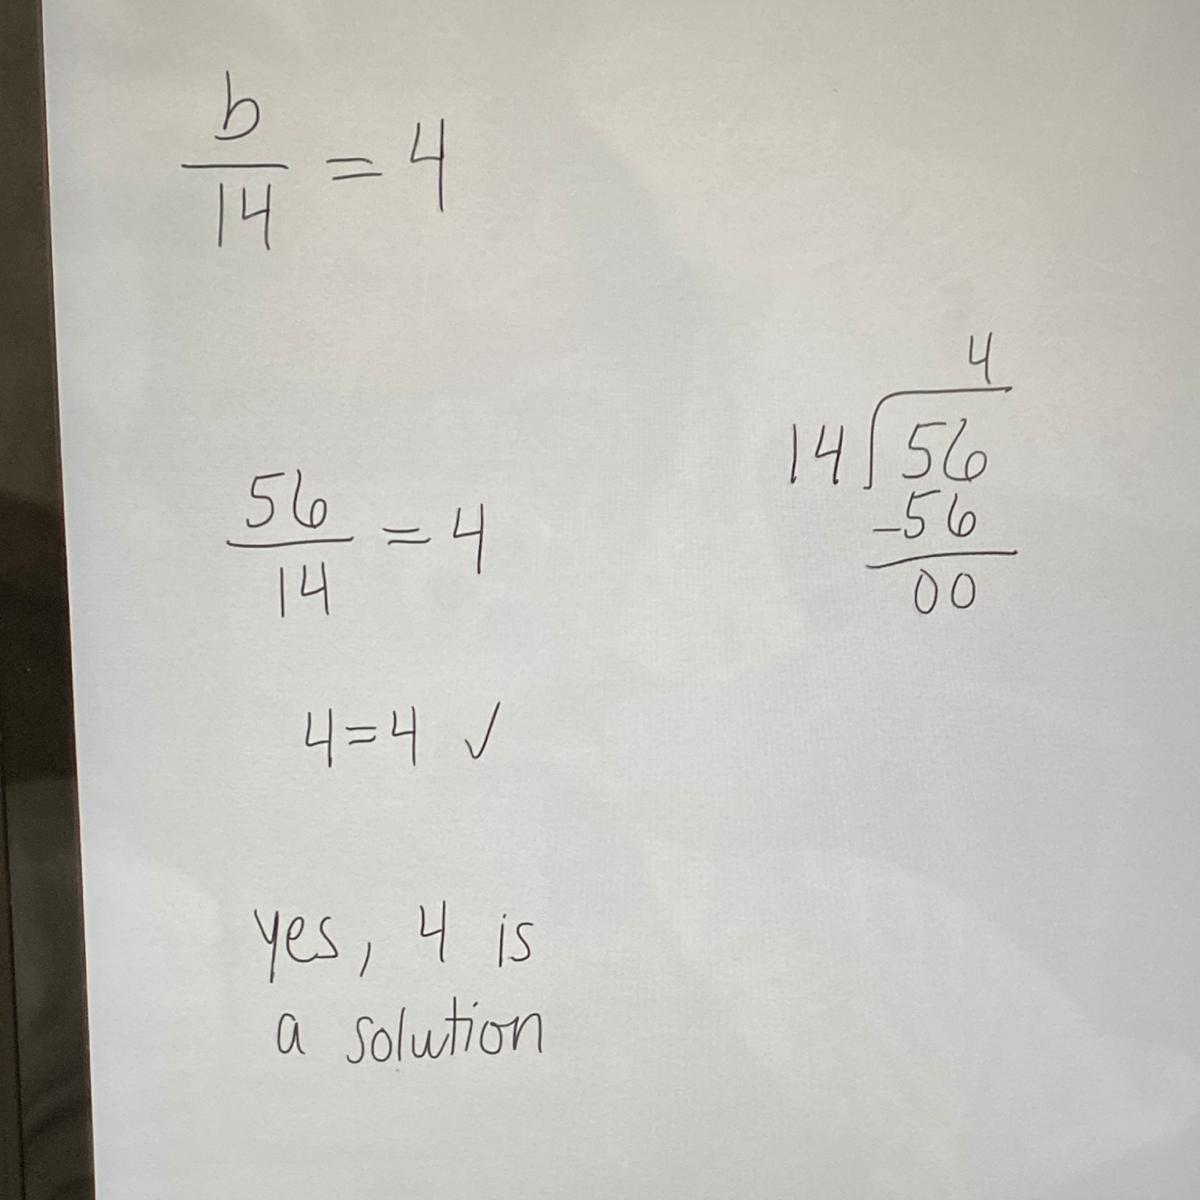 b
14
= 4
56
14
= 4
4=4 ✓
yes, 4 is
a solution
4
14 56
-56
00